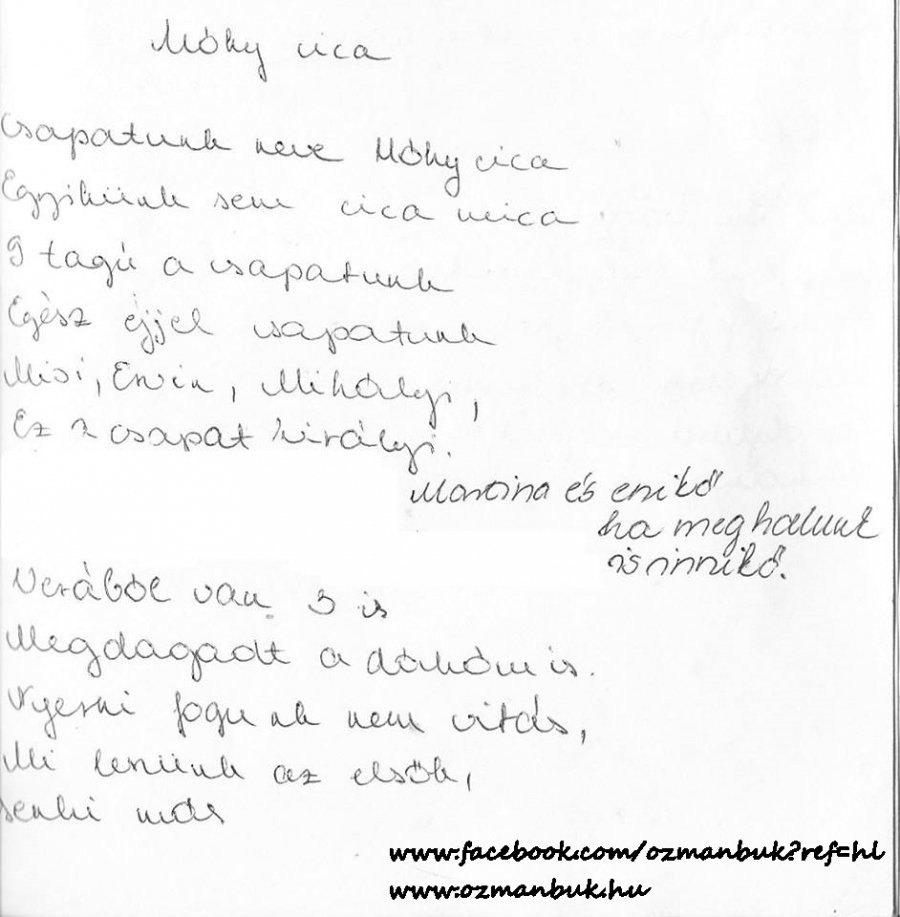 Móky cica
Csapatunk neve Móky cica
Egyikünk sem cica mica
9 tagú a csapatunk
Egész éjjel csapatunk
Misi, Ervin, Mihályi,
Ez a csapat királyi.
Martina és enikő
ha meghalunk
is innikő.
Verából van 3 is
Megdagadt a dákóm is.
Nyerni fogunk nem vitás,
Mi leszünk az elsők,
senki más
www.facebook.com/ozmanbuk?ref=hl
www.ozmanbuk.hu